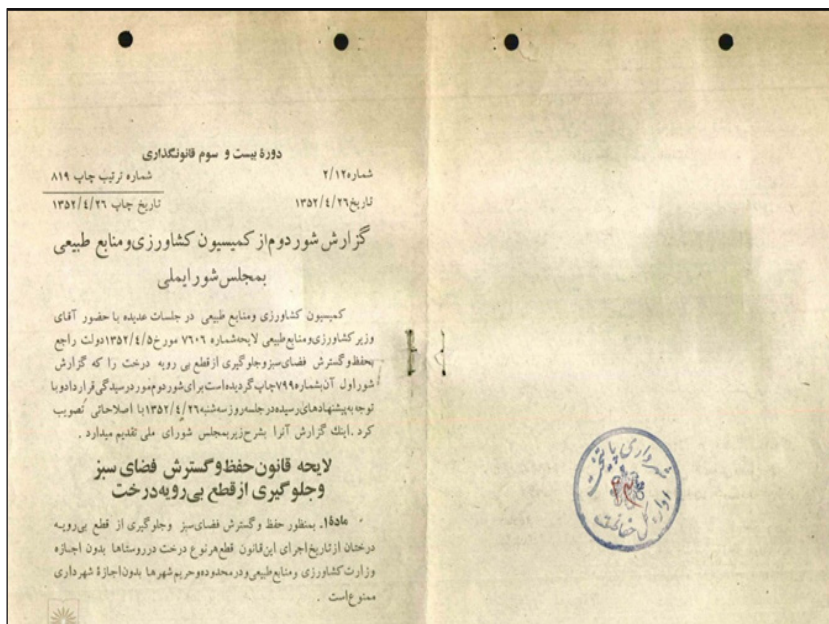 دورهٔ بیست و سوم قانونگذاری
شماره ۲/۱۲
شماره ترتیب چاپ ۸۱۹
تاریخ ۱۳۵۲/۴/۲۶
تاریخ چاپ ۱۳۵۲/۴/۲۶
گزارش شور دوم از کمیسیون کشاورزی و منابع طبیعی
بمجلس شورایملی
کمیسیون کشاورزی ومنابع طبیعی در جلسات عدیده با حضور آقای
وزیر کشاورزی و منابع طبیعی لایحه شماره ۷۶۰۶ مورخ ۱۳۵۲/۴/۵ دولت راجع
بحفظ و گسترش فضای سبز و جلوگیری از قطع بی رویه درخت را که گزارش
شور اول آن بشماره ۷۹۹ چاپ گردیده است برای شور دوم مورد رسیدگی قرار داد و با
توجه به پیشنهادهای رسیده در جلسه روز سه شنبه ۱۳۵۲/۴/۲۶ با اصلاحاتی تصویب
کرد. اینك گزارش آنرا بشرح زیر بمجلس شورای ملی تقدیم میدارد.
لایحه قانون حفظ و گسترش فضای سبز
و جلوگیری از قطع بی رویه درخت
مادهٔ ۱. بمنظور حفظ و گسترش فضای سبز وجلوگیری از قطع بی رویه
درختان از تاریخ اجرای این قانون قطع هر نوع درخت در روستاها بدون اجازه
وزارت کشاورزی ومنابع طبیعی و در محدوده و حریم شهرها بدون اجازهٔ شهرداری
ممنوع است.
شهرداری پایتخت
اداره کل